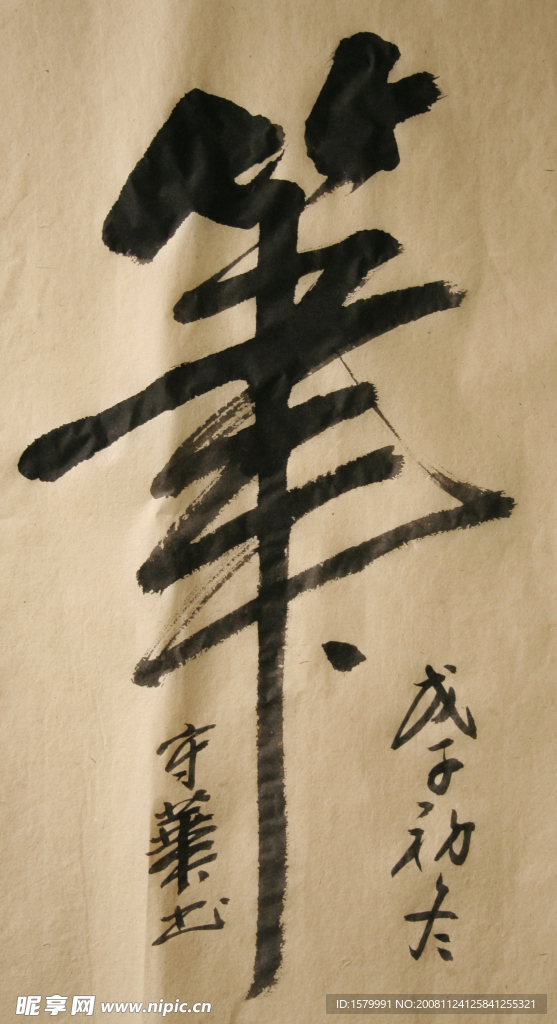 筆
戊子初冬
守華书
昵享网 www.nipic.cn
ID:1579991 NO:20081124125841255321